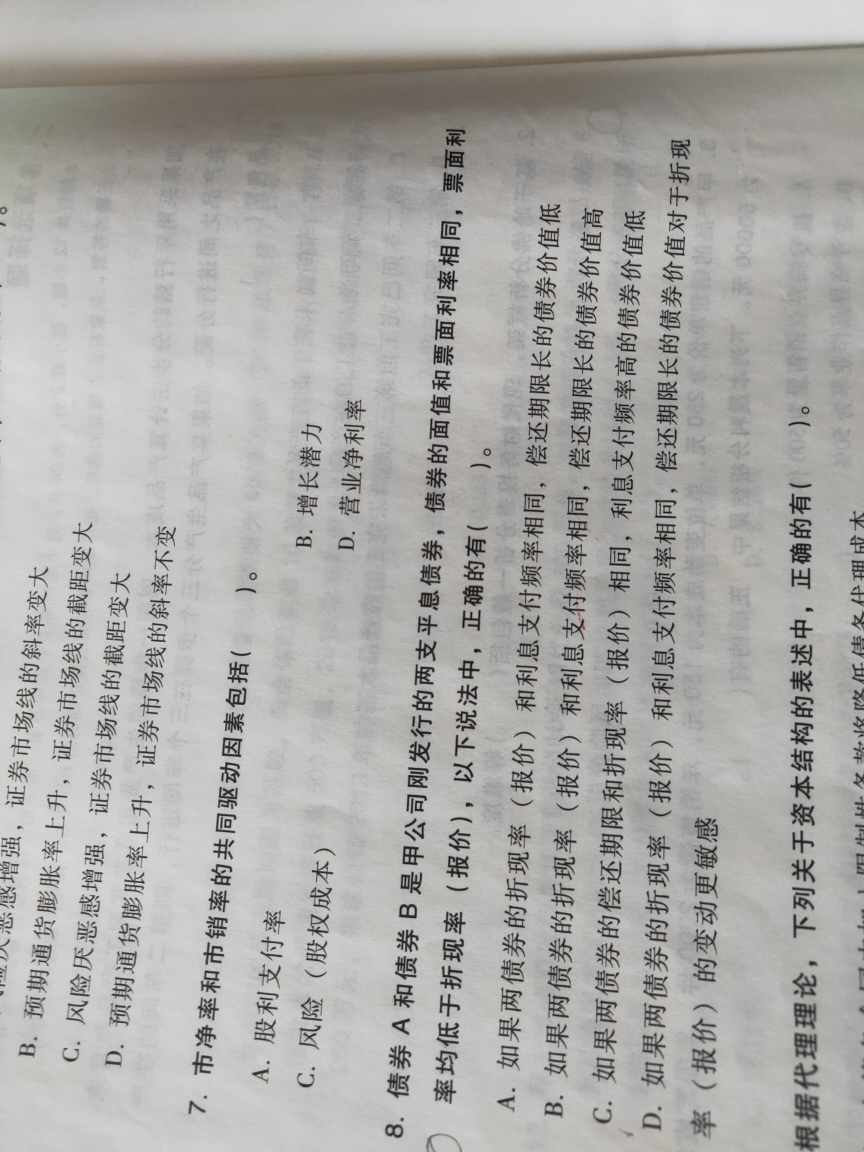 风险厌恶感增强，证券市场线的斜率变大
B. 预期通货膨胀率上升，证券市场线的截距变大
C. 风险厌恶感增强，证券市场线的截距变大
D. 预期通货膨胀率上升，证券市场线的斜率不变
7. 市净率和市销率的共同驱动因素包括( )。
A. 股利支付率 B. 增长潜力
C. 风险（股权成本） D. 营业净利率
8. 债券 A 和债券 B 是甲公司刚发行的两支平息债券，债券的面值和票面利率相同，票面利
率均低于折现率（报价），以下说法中，正确的有( )。
A. 如果两债券的折现率（报价）和利息支付频率相同，偿还期限长的债券价值低
B. 如果两债券的折现率（报价）和利息支付频率相同，偿还期限长的债券价值高
C. 如果两债券的偿还期限和折现率（报价）相同，利息支付频率高的债券价值低
D. 如果两债券的折现率（报价）和利息支付频率相同，偿还期限长的债券价值对于折现
率（报价）的变动更敏感
根据代理理论，下列关于资本结构的表述中，正确的有( )。
限制性条款将降低债务代理成本